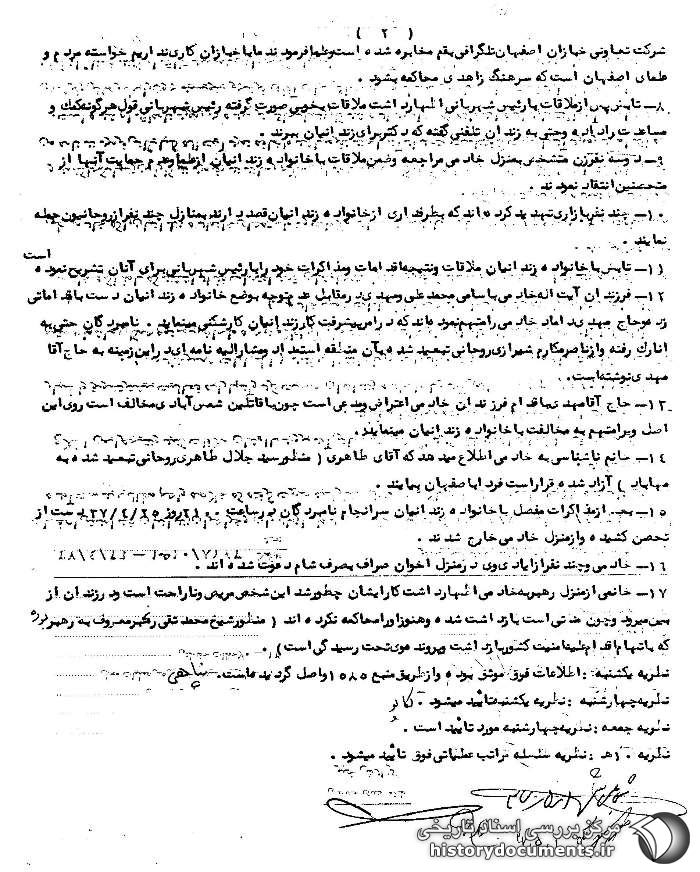 ( ۲ )
شرکت تعاونی خبازان اصفهان تلگرافی بقم مخابره شده است وعلما فرمودند ما با خبازان کاری نداریم خواسته مردم و
علمای اصفهان است که سرهنگ زاهدی محاکمه بشود .
۸- تابش پس از ملاقات با رئیس شهربانی اظهار داشت ملاقات بخوبی صورت گرفته رئیس شهربانی قول هرگونه کمک و
مساعدت را داده و حتی به زندان تلفنی گفته که دکتر برای زندانیان ببرند .
۹- دو سه نفر زن متشخص بمنزل خادمی مراجعه وضمن ملاقات با خانواده زندانیان از علما وعدم حمایت آنها از
متحصنین انتقاد نمودند .
۱۰- چند نفر بازاری تهدید کرده اند که بطرفداری از خانواده زندانیان قصد دارند بمنازل چند نفر از روحانیون حمله
نمایند .
۱۱- تابش با خانواده زندانیان ملاقات ونتیجه اقدامات ومذاکرات خود را با رئیس شهربانی برای آنان تشریح نموده است
۱۲- فرزندان آیت اله خادمی باسامی محمد علی ومهدی در مقابل عدم توجه بوضع خانواده زندانیان دست باقداماتی
زده وحاج مهدی داماد خادمی را متهم نموده اند که در امر پیشرفت کار زندانیان کارشکنی مینماید . نامبردگان حتی به
انارک رفته و از ناصر مکارم شیرازی روحانی تبعید شده بآن منطقه استمداد ومشارالیه نامه ای در این زمینه به حاج آقا
مهدی نوشته است.
۱۳- حاج آقا مهدی باقدام فرزندان خادمی اعتراض ومدعی است چون با قاتلین شمس آبادی مخالف است روی این
اصل ویرا متهم به مخالفت با خانواده زندانیان مینمایند .
۱۴- خانم ناشناسی به خادمی اطلاع میدهد که آقای طاهری ( منظور سید جلال طاهری روحانی تبعید شده به
مهاباد ) آزاد شده قرار است فردا باصفهان بیایند .
۱۵- بعد از مذاکرات مفصل با خانواده زندانیان سرانجام نامبردگان در ساعت ۲۱۰۰ روز ۳۷/۴/۲۵ دست از
تحصن کشیده و از منزل خادمی خارج شدند .
۱۶- خادمی وچند نفر از ایادی وی در منزل اخوان صراف بصرف شام دعوت شده اند .
۱۷- خانمی از منزل رهبر به خادمی اظهار داشت کار ایشان چطور شد این شخص مریض وناراحت است ودر زندان از
بین میرود وچون مدتی است بازداشت شده وهنوز او را محاکمه نکرده اند ( منظور شیخ محمد تقی رهبر معروف به رهبر بوده
که باتهام اقدام علیه امنیت کشور بازداشت وپرونده وی تحت رسیدگی است ) .
نظریه یکشنبه : اطلاعات فوق موثق بوده و از طریق منبع ۱۵۸۵ واصل گردیده است.
نظریه چهارشنبه : نظریه یکشنبه تائید میشود .
نظریه جمعه : نظریه چهارشنبه مورد تائید است .
نظریه ۱۰ هـ : نظریه سلسله مراتب عملیاتی فوق تائید میشود .
مرکز بررسی اسناد تاریخی
historydocuments.ir